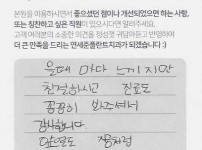 본원을 이용하시면서 좋으셨던 점이나 개선되었으면 하는 사항,
또는 칭찬하고 싶은 직원이 있으시다면 알려주세요.
고객 여러분의 소중한 의견을 정성껏 귀담아듣고 반영하여
더 큰 만족을 드리는 연세준플란트치과가 되겠습니다 :)
올때 마다 느끼지만
친절하시고 진료도
꼼꼼히 봐주셔서
감사합니다
앞으로도 지금처럼